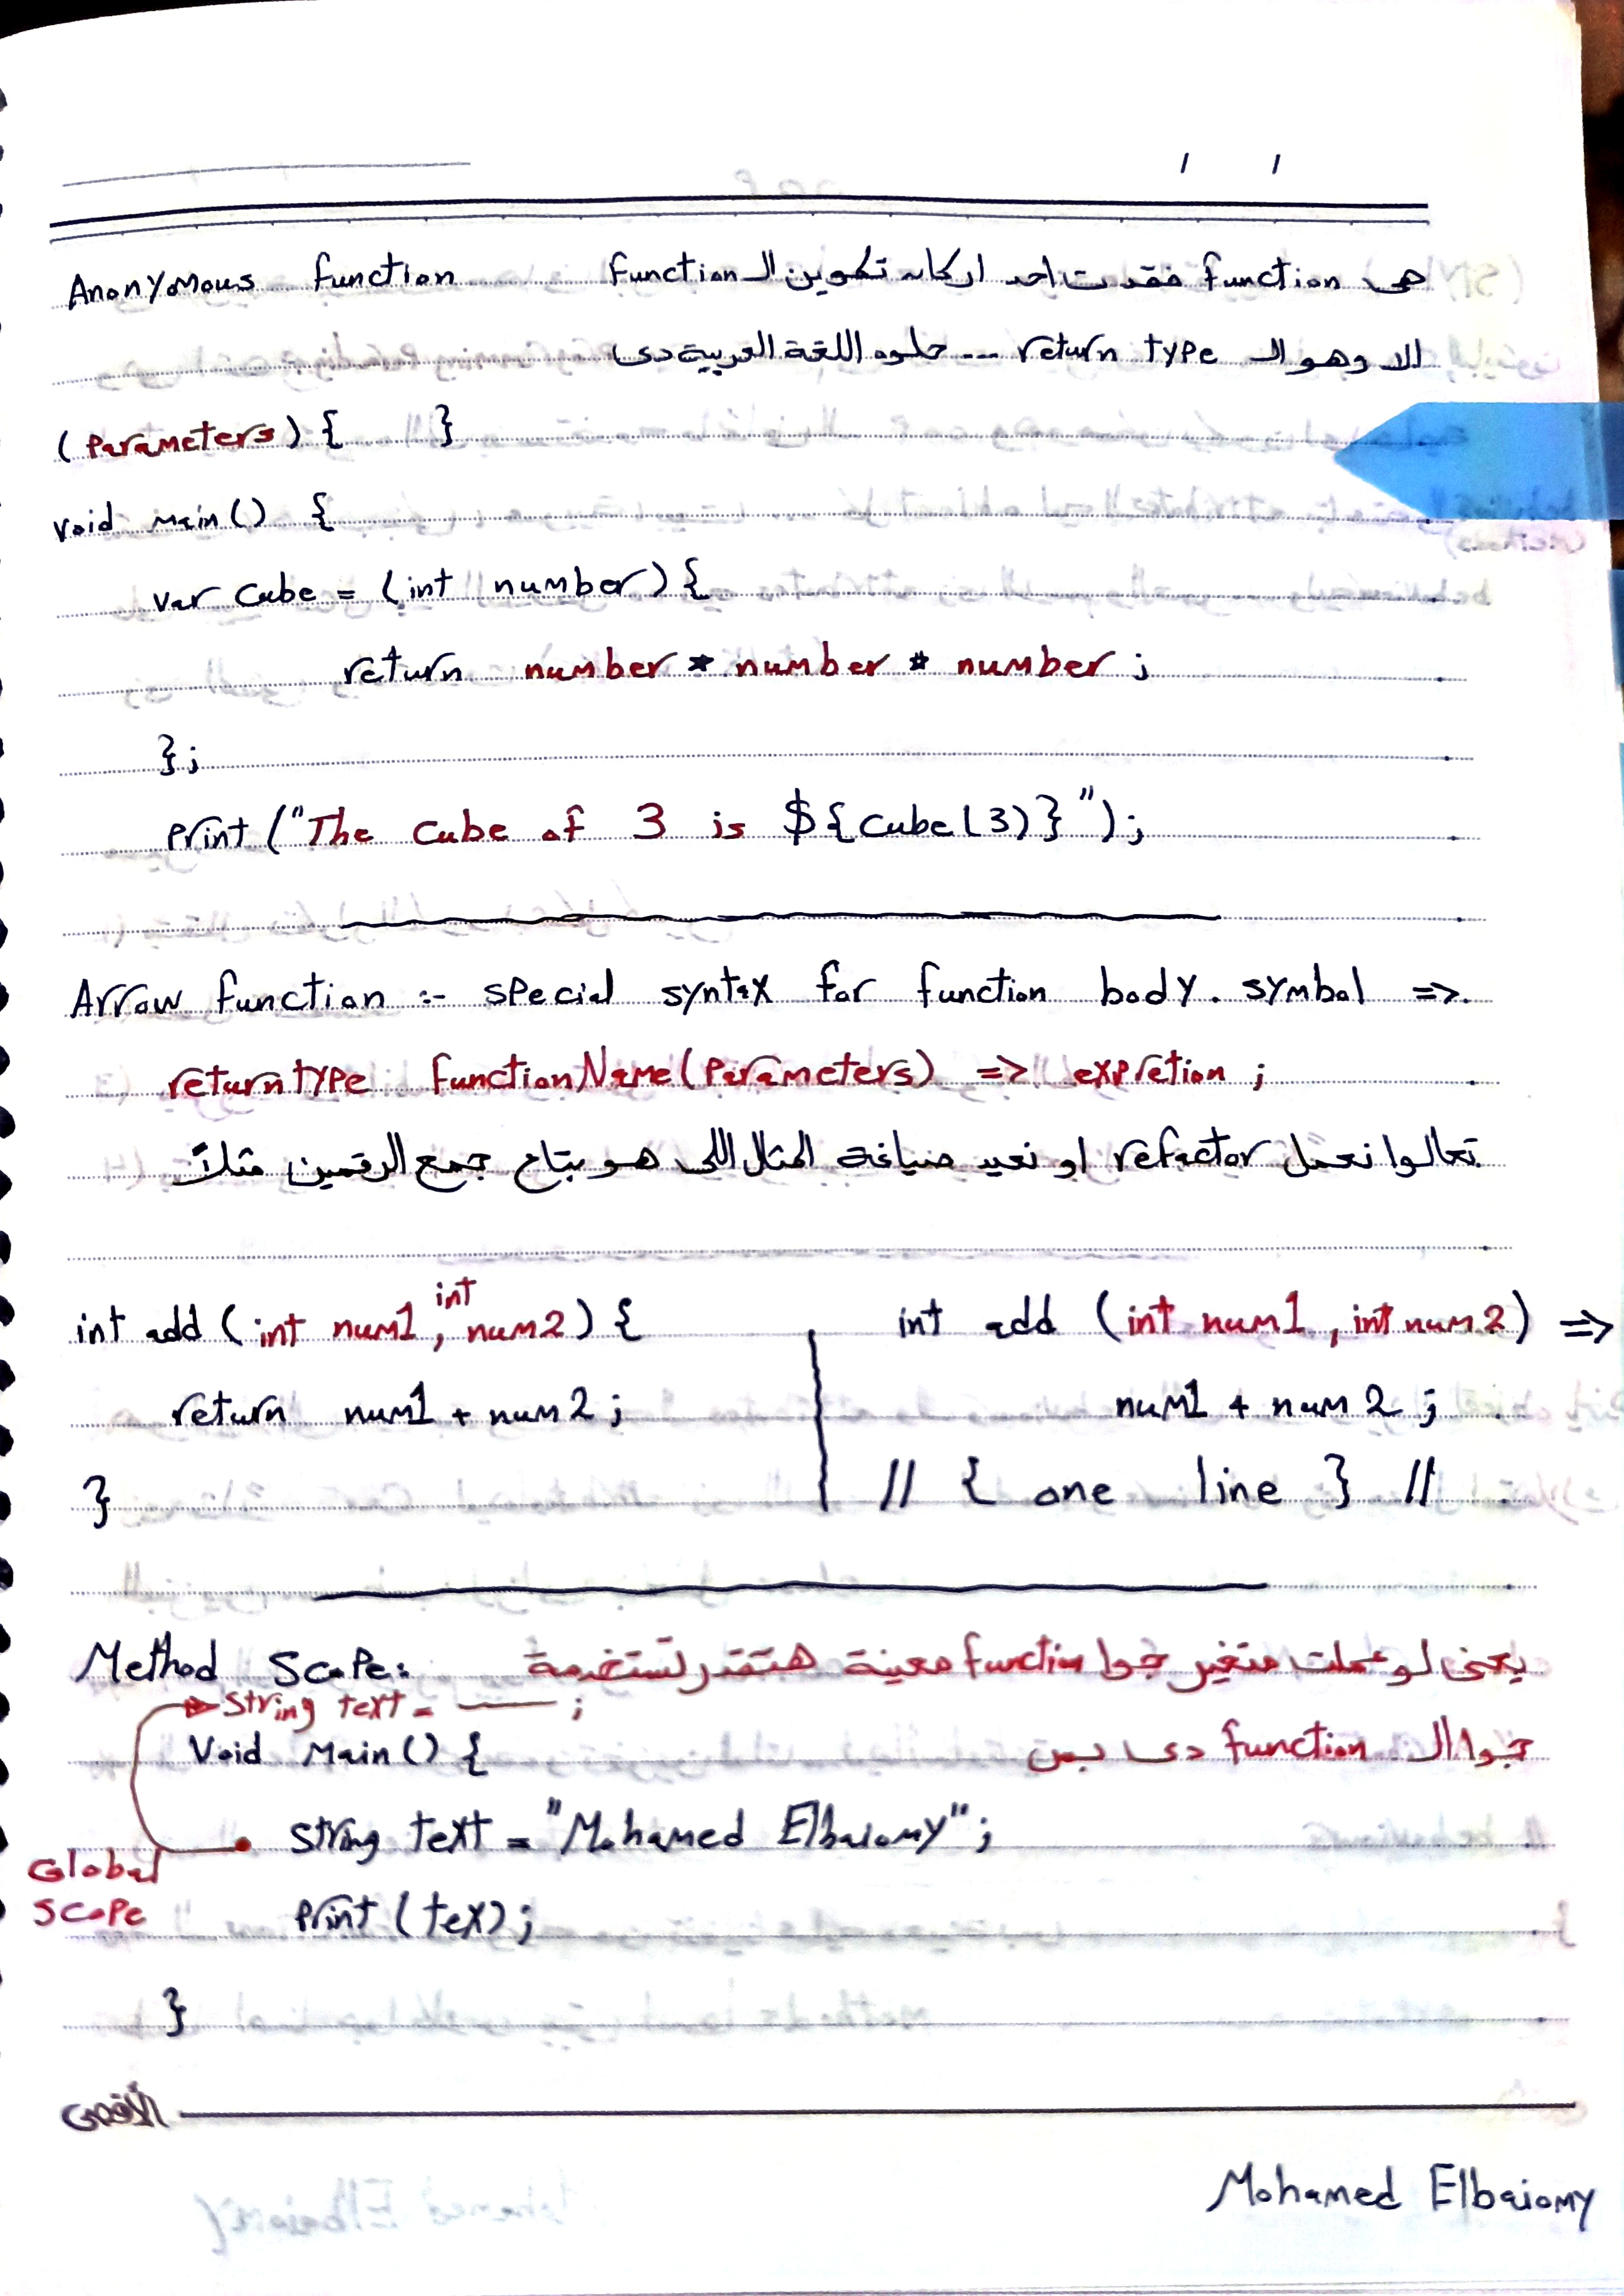 / /
Anonymous function هى function فقدت احد اركان تكوين الـ function
الا وهو الـ return type ... حلوه اللغة العربية دى
(Parameters) { }
void main() {
var cube = (int number) {
return number * number * number ;
};
print ("The cube of 3 is ${cube(3)}");
Arrow function :- special syntax for function body. symbol =>.
returntype functionName(Parameters) => expretion ;
تعالوا نعمل refactor او نعيد صياغة المثال اللى هو بتاع جمع الرقمين مثلاً
int add (int num1, int num2) { int add (int num1, int num2) =>
return num1 + num2 ; num1 + num2 ;
} // { one line } //
Method Scope: يعنى لو عملت متغير جوا function معينة هتقدر تستخدمة
String text = ——— ;
Void main() { جوا الـ function دى بس
String text = "Mohamed Elbaiomy";
Global
Scope print (tex);
}
الأقصى
Mohamed Elbaiomy